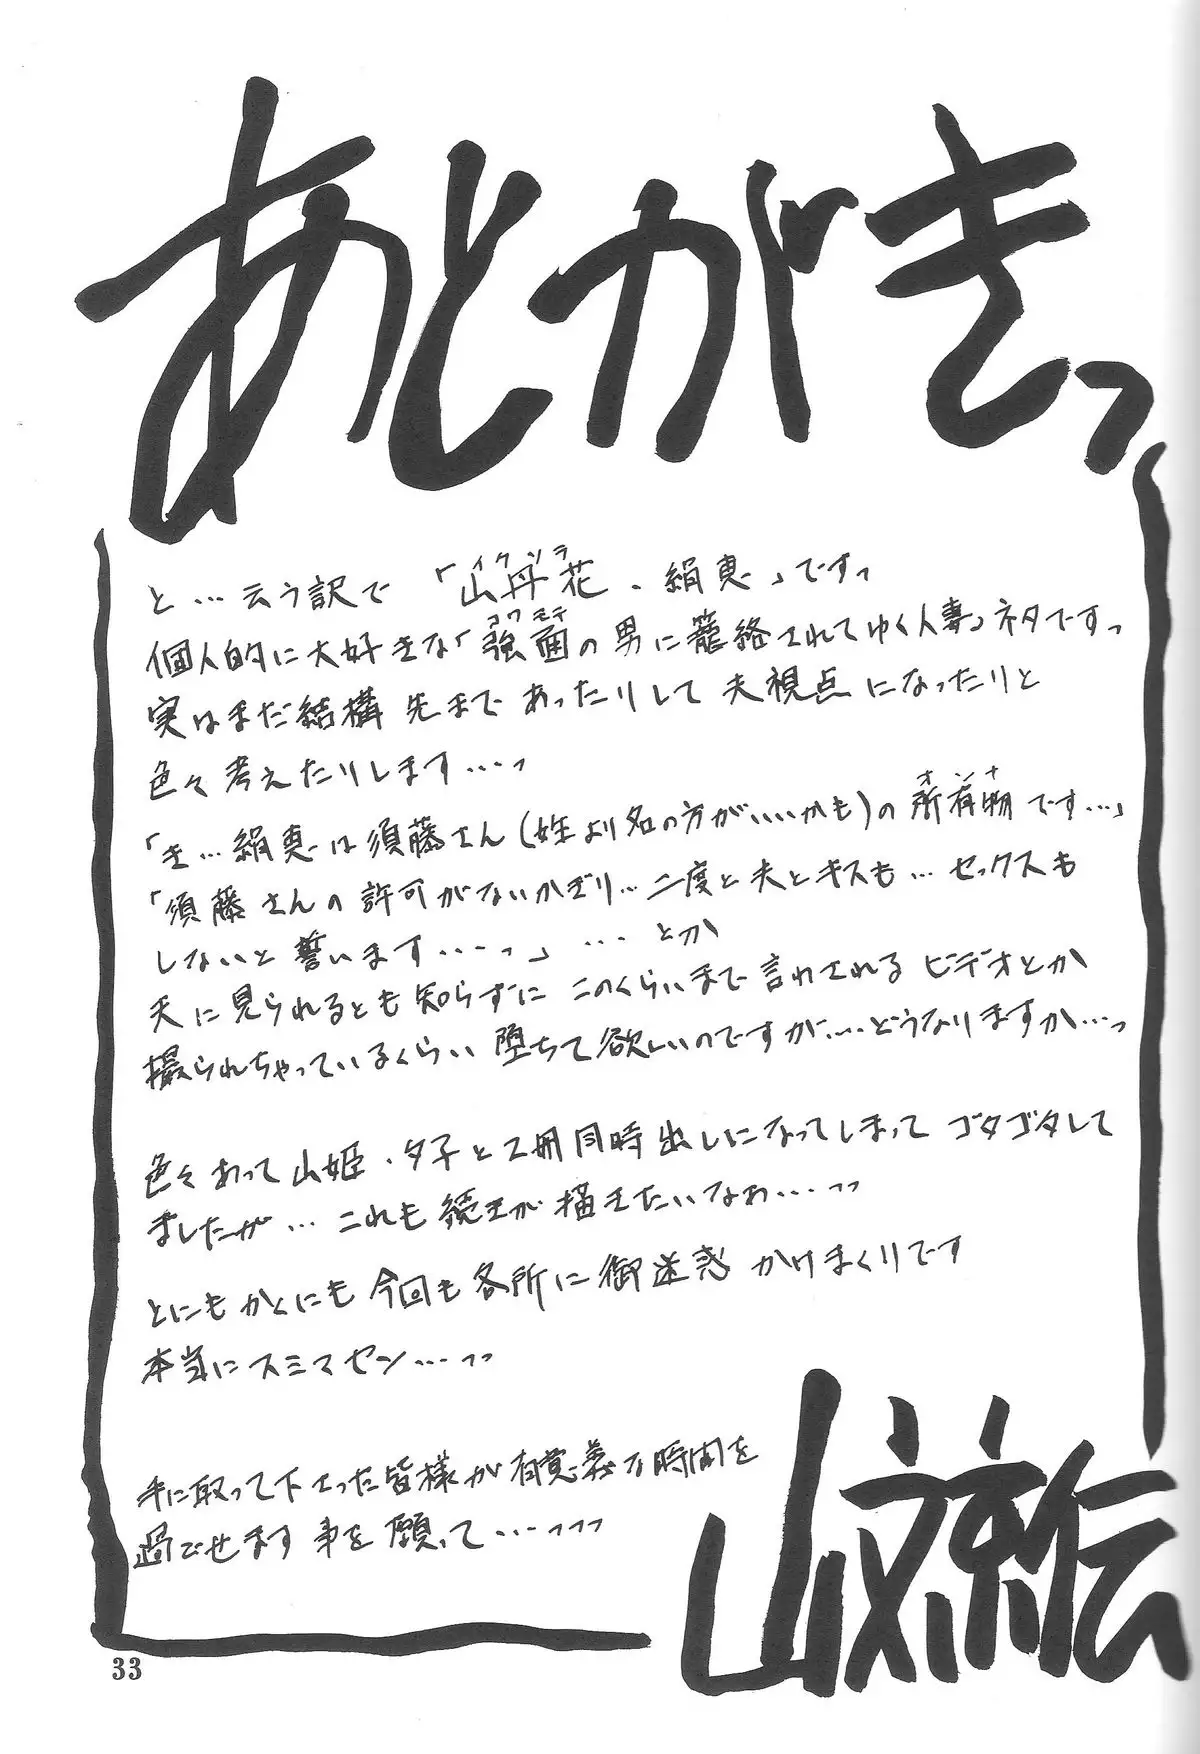 あとがきっ
と…云う訳で「山丹花・絹恵」ですっ
イクソラ
個人的に大好きな「強面の男に籠絡されてゆく人妻」ネタですっ
コワモテ
実はまだ結構先まであったりして夫視点になったりと
色々考えたりします…っ
「き…絹恵は須藤さん(姓より名の方がいいかも)の所有物です…」
オンナ
「須藤さんの許可がないかぎり…二度と夫とキスも…セックスも
しないと誓います…っ」…とか
夫に見られるとも知らずにこのくらいまで言わされるビデオとか
撮られちゃっているくらい堕ちて欲しいのですが…どうなりますか…っ
色々あって山姫・夕子と2冊同時出しになってしまってゴタゴタして
ましたが…これも続きが描きたいなぁ…っっ
とにもかくにも今回も各所に御迷惑かけまくりです
本当にスミマセン…っっ
手に取って下さった皆様が有意義な時間を
過ごせます事を願って…っっっ
山文京伝
33